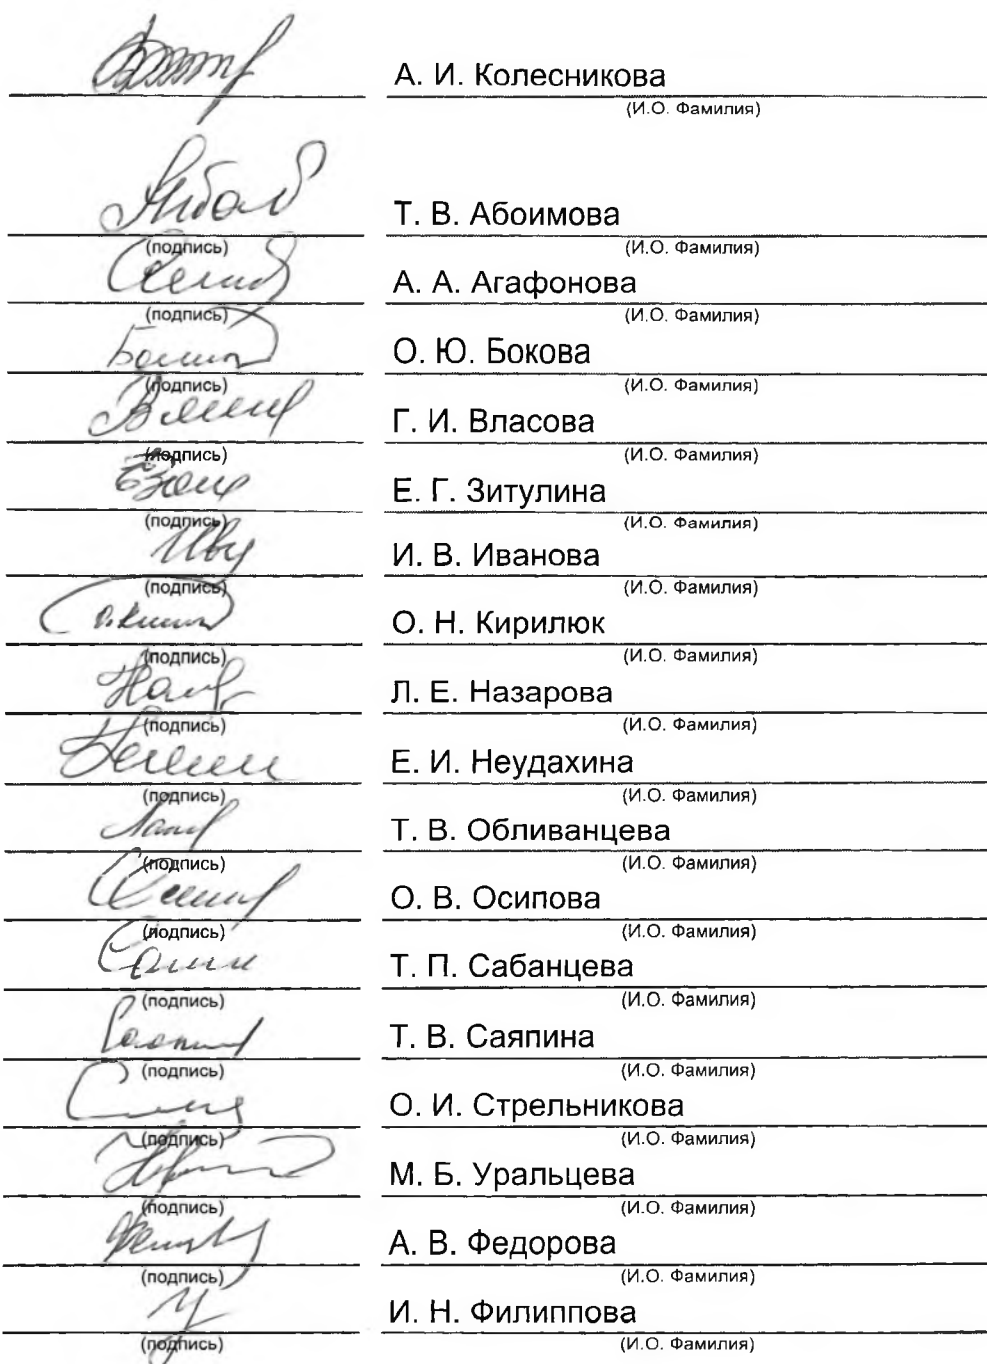 А. И. Колесникова
(И.О. Фамилия)
Т. В. Абоимова
(подпись) (И.О. Фамилия)
А. А. Агафонова
(подпись) (И.О. Фамилия)
О. Ю. Бокова
(подпись) (И.О. Фамилия)
Г. И. Власова
(подпись) (И.О. Фамилия)
Е. Г. Зитулина
(подпись) (И.О. Фамилия)
И. В. Иванова
(подпись) (И.О. Фамилия)
О. Н. Кирилюк
(подпись) (И.О. Фамилия)
Л. Е. Назарова
(подпись) (И.О. Фамилия)
Е. И. Неудахина
(подпись) (И.О. Фамилия)
Т. В. Обливанцева
(подпись) (И.О. Фамилия)
О. В. Осипова
(подпись) (И.О. Фамилия)
Т. П. Сабанцева
(подпись) (И.О. Фамилия)
Т. В. Саяпина
(подпись) (И.О. Фамилия)
О. И. Стрельникова
(подпись) (И.О. Фамилия)
М. Б. Уральцева
(подпись) (И.О. Фамилия)
А. В. Федорова
(подпись) (И.О. Фамилия)
И. Н. Филиппова
(подпись) (И.О. Фамилия)